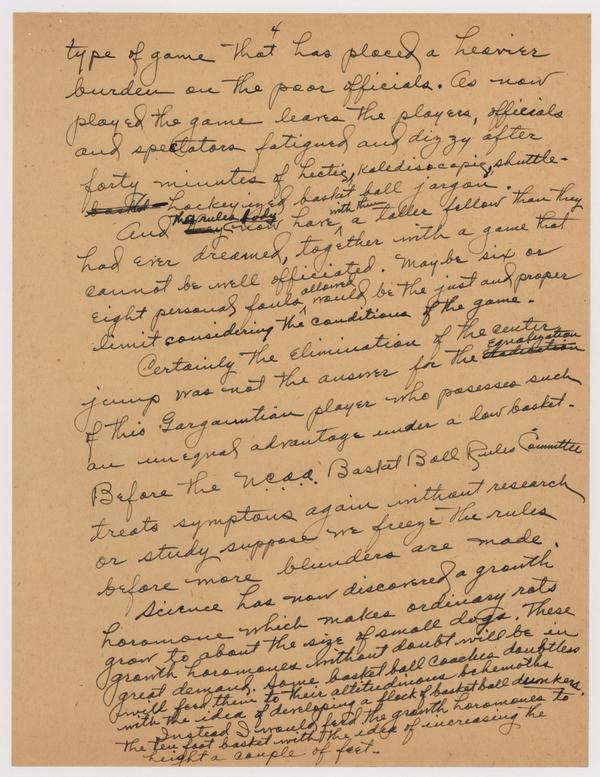 4
type of game that has placed a heavier
burden on the poor officials. As now
played the game leaves the players, officials
and spectators fatigued and dizzy after
forty minutes of hectic, kaledisocapic, shuttle-
hockeyized basket ball jargon.
And the rules body now have with them a taller fellow than they
had ever dreamed, together with a game that
cannot be well officiated. Maybe six or
eight personal fouls allowed would be the just and proper
limit considering the conditions of the game.
Certainly the elimination of the center
jump was not the answer for the equalization
of this Gargauntian player who posesses such
an unequal advantage under a low basket.
Before the N.C.A.A. Basket Ball Rules Committee
treats symptons again without research
or study suppose we freeze the rules
before more blunders are made.
Science has now discovered a growth
horomone which makes ordinary rats
grow to about the size of small dogs. These
growth horomones without doubt will be in
great demand. Some basket ball coaches doubtless
will feed them to their altitudinous behemoths
with the idea of developing a flock of basket ball dunkers.
Instead I would feed the growth horomones to
the ten foot basket with the idea of increasing the
height a couple of feet.